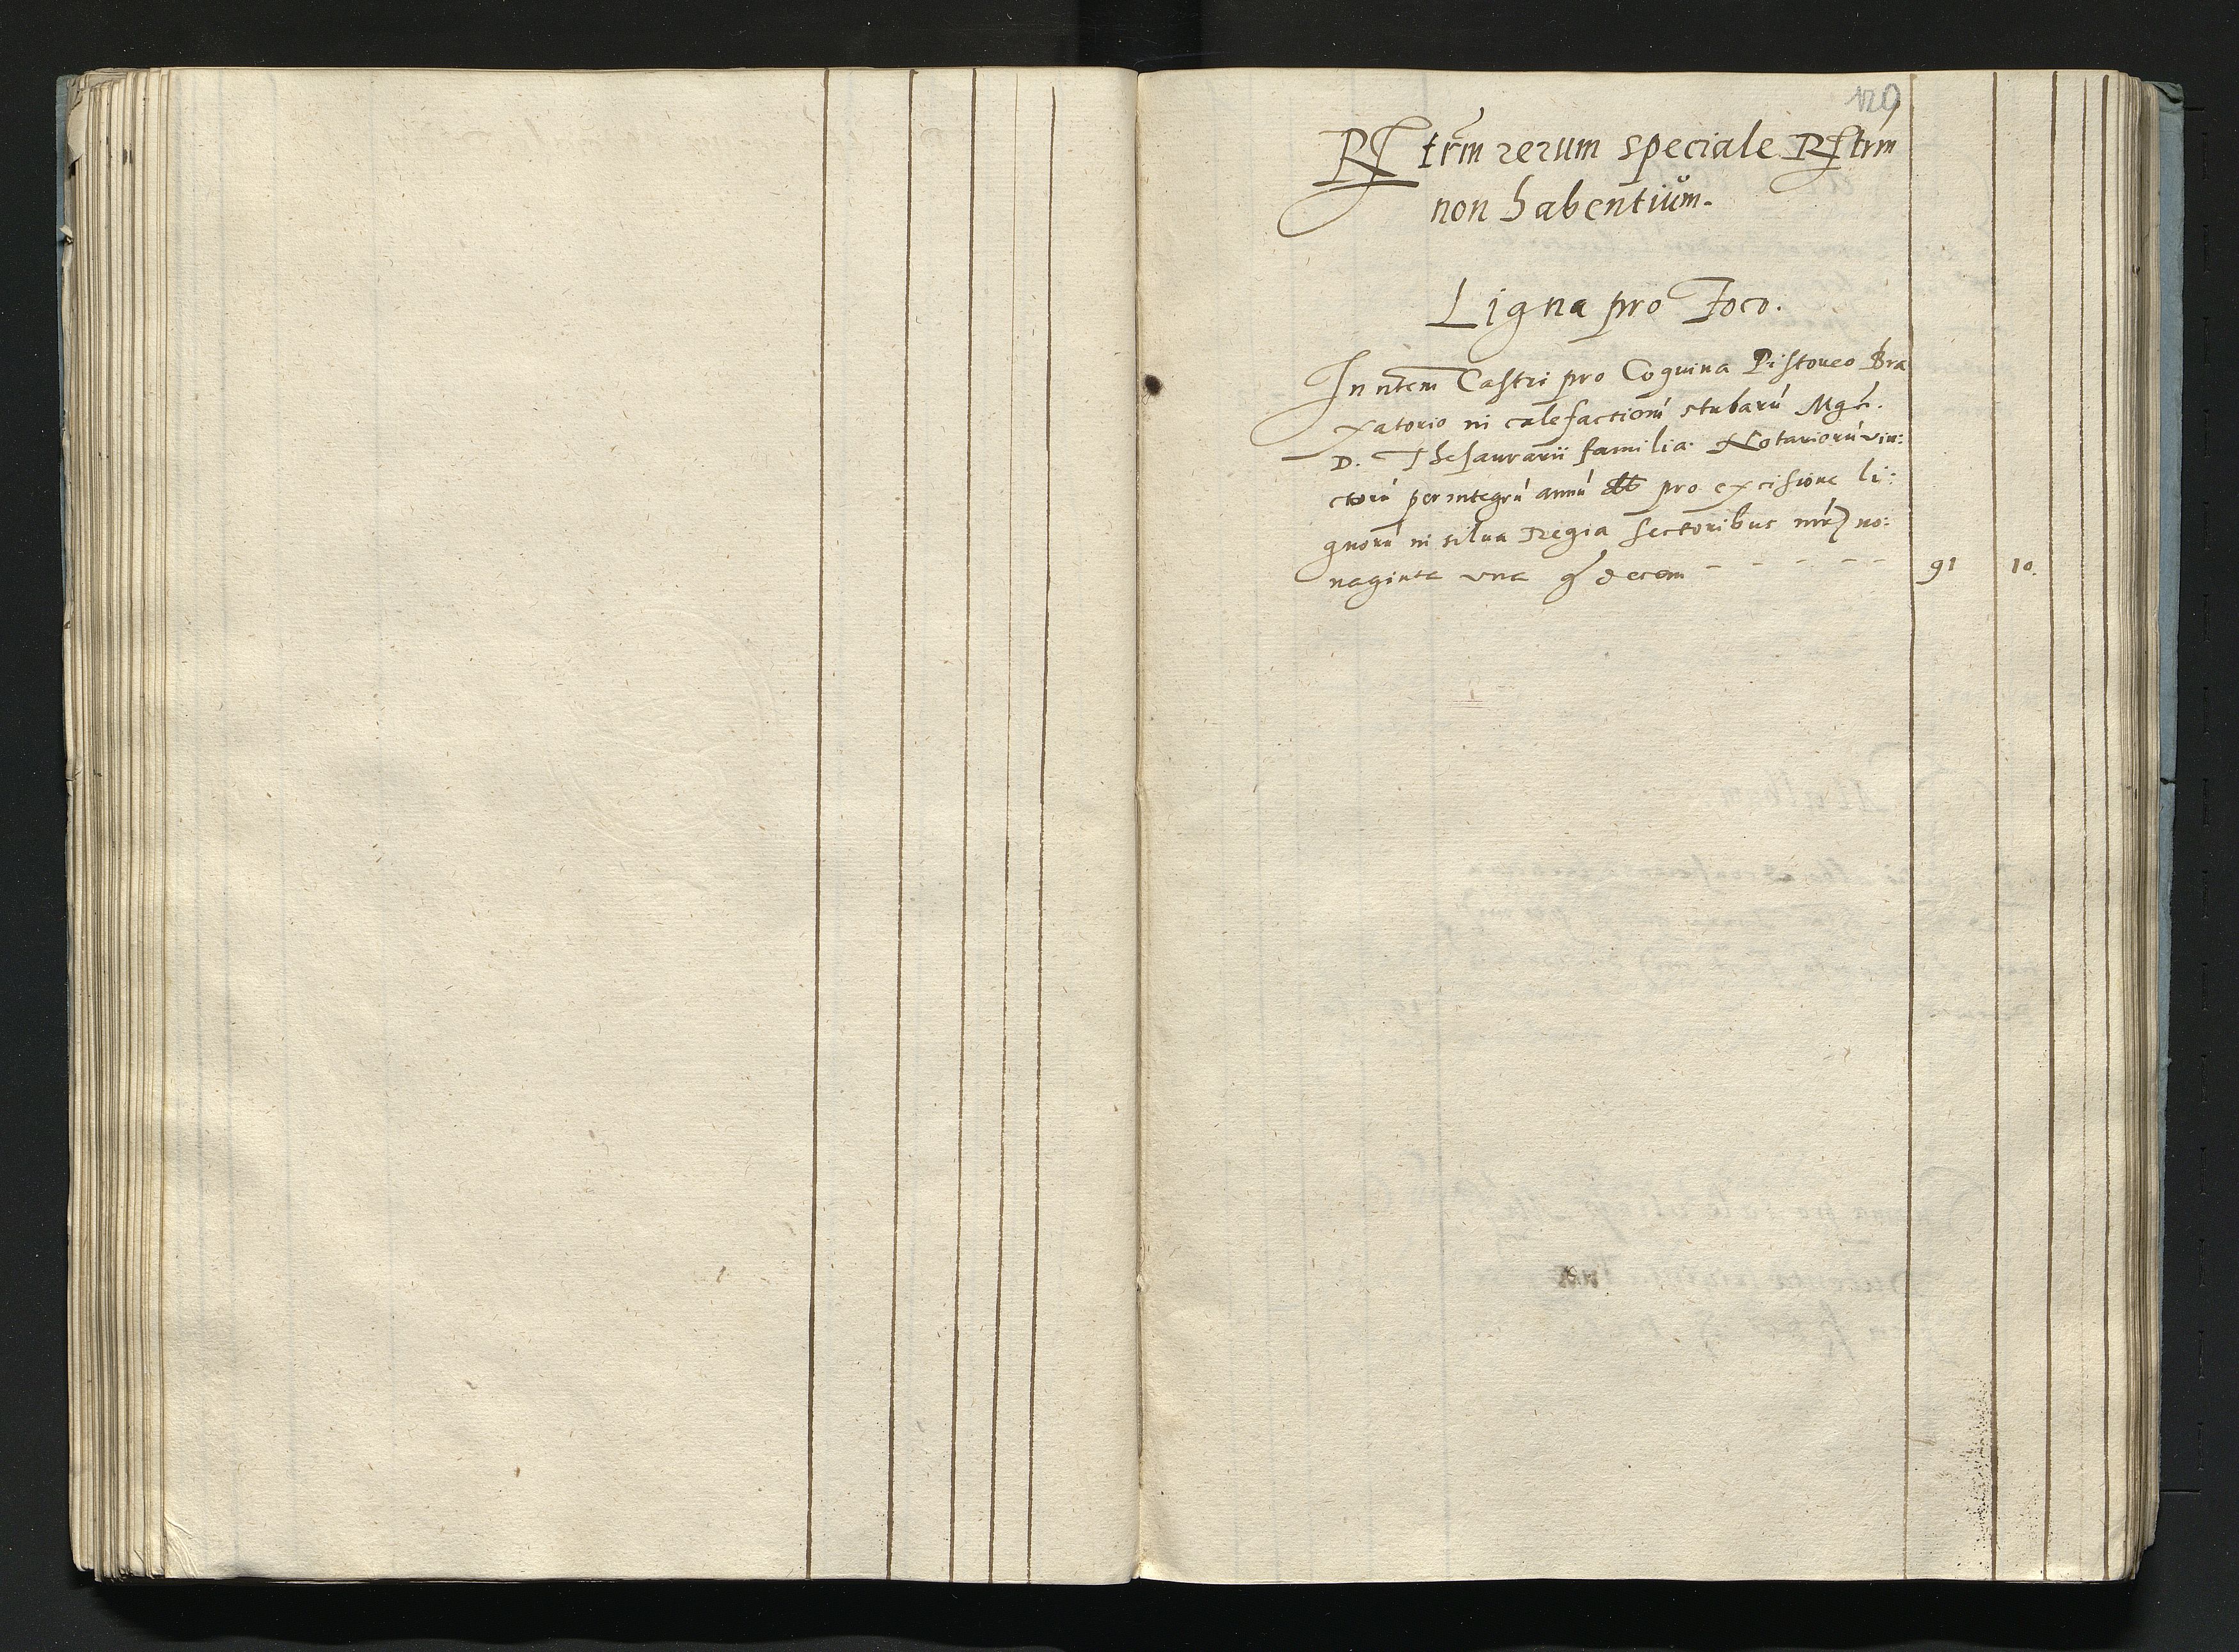 129
Rstrm rerum speciale Rstrm
non habentiŭm.
Ligna pro Foco.
In ntem Castri pro Coquina Pistoreo Bra
xatorio in calefactioni stubarú Mgci.
D. Thesaurarii familia. Notariorú vin:
ctorú per integrú annú pro excisione li:
gnorú in silua Regia sectoribus mr no:
naginta vna g decem - - - - - 91 10.